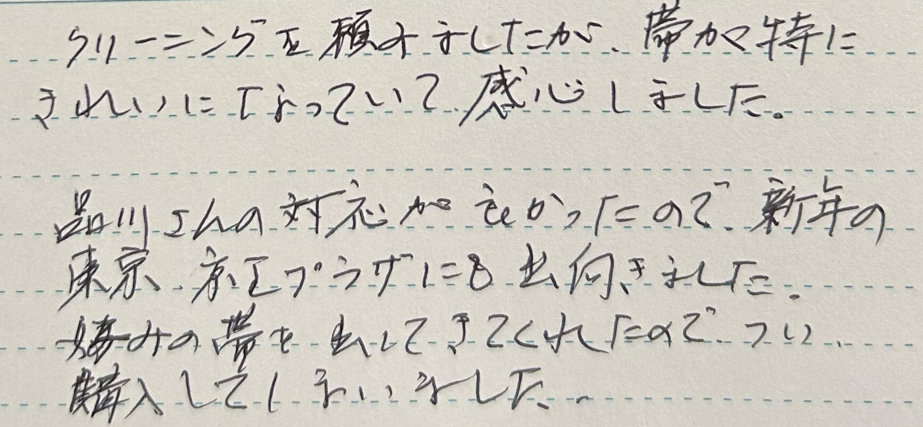 クリーニングを頼みましたが、帯が特に
きれいになっていて、感心しました。
品川さんの対応がよかったので、新年の
東京、京王プラザにも出向きました。
好みの帯を出してきてくれたので、つい、
購入してしまいました。